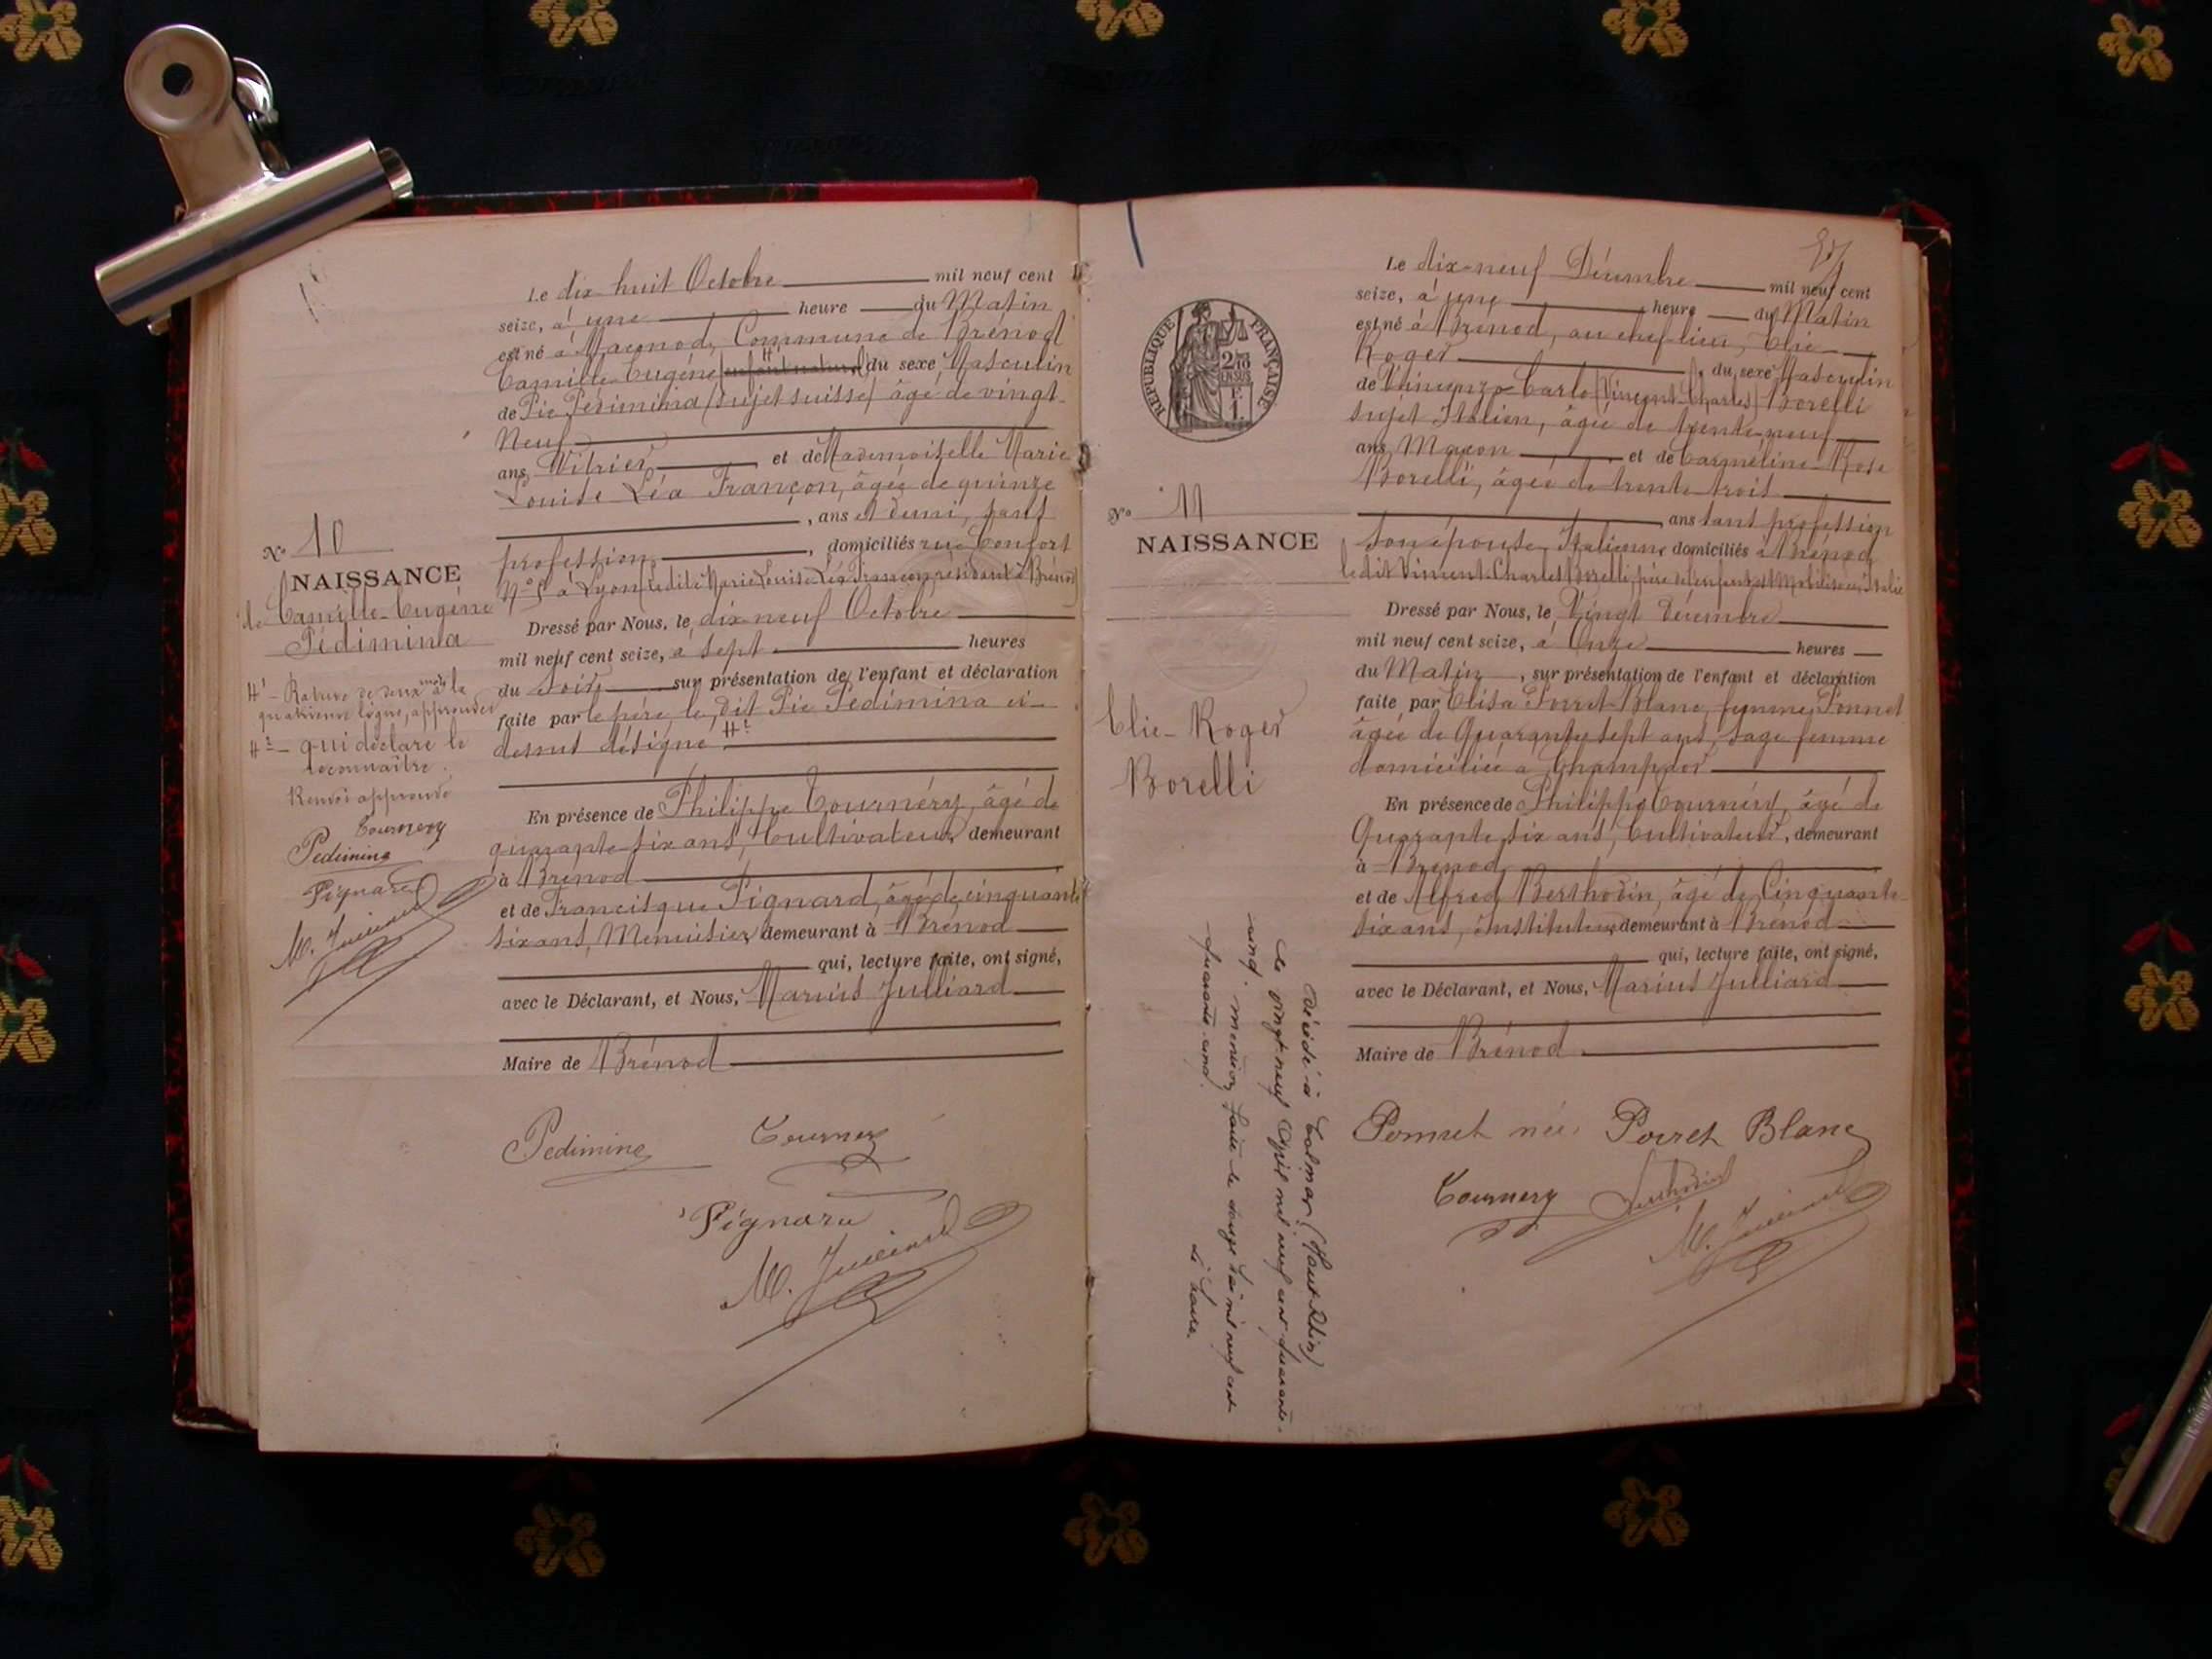 Le dix huit Octobre mil neuf cent
seize, à une heure du Matin
est né à Maconod, Commune de Brénod
Camille Eugène (enfant naturel) du sexe Masculin
de Pie Pédimina (sujet suisse) âgé de vingt-
Neuf
ans, Vitrier et de Mademoiselle Marie
Louise Léa Françon, âgée de quinze
, ans et demi, sans
profession, domiciliés rue Confort
N° à Lyon (ladite Marie Louise Léa Françon résidant à Brénod)
N° 10
NAISSANCE
de Camille-Eugène
Pédimina
H1 - Rature de deux mots à la
quatrième ligne, approuvée
H2 - qui déclare le
reconnaître.
Renvoi approuvé
Tournery
Pedimina
Pignard
M. Juilliard
Dressé par Nous, le dix-neuf Octobre
mil neuf cent seize, à sept heures
du soir sur présentation de l'enfant et déclaration
faite par le père, le dit Pie Pédimina ci-
dessus désigné. H2
En présence de Philippe Tournéry, âgé de
quarante six ans, Cultivateur, demeurant
à Brénod
et de Francisque Pignard, âgé de cinquante
six ans, Menuisier, demeurant à Brénod
qui, lecture faite, ont signé,
avec le Déclarant, et Nous, Marius Julliard
Maire de Brénod
Pedimina Tournery
Pignard
M. Juilliard
RÉPUBLIQUE FRANÇAISE
Le dix-neuf Décembre mil neuf cent
seize, à une heure du Matin
est né à Brénod, au chef-lieu, Elie
Roger, du sexe Masculin
de Vincenzo Carlo (Vincent-Charles) Borelli
sujet Italien, âgé de trente-neuf
ans, Maçon et de Carméline Rose
Borelli, âgée de trente trois
ans sans profession
son épouse, Italienne, domiciliés à Brénod
le dit Vincent Charles Borelli, père de l'enfant est Mobilisé en Italie
N° 11
NAISSANCE
Elie-Roger
Borelli
Dressé par Nous, le Vingt Décembre
mil neuf cent seize, à Onze heures
du Matin, sur présentation de l'enfant et déclaration
faite par Elisa Poncet-Blanc, femme Ponnet
âgée de Quarante sept ans, sage femme
domiciliée à Champdor
En présence de Philippe Tournéry, âgé de
Quarante six ans, Cultivateur, demeurant
à Brénod
et de Alfred Berthodin, âgé de Cinquante-
six ans, instituteur demeurant à Brénod
qui, lecture faite, ont signé,
avec le Déclarant, et Nous, Marius Julliard
Maire de Brénod
Poncet Blanc
Tournery Berthodin
M. Juilliard
Décédé à Colmar (Haut-Rhin)
le vingt neuf Avril mil neuf cent quarante-
cinq. mention faite le douze mil neuf cent
quarante-cinq.
Le Maire.